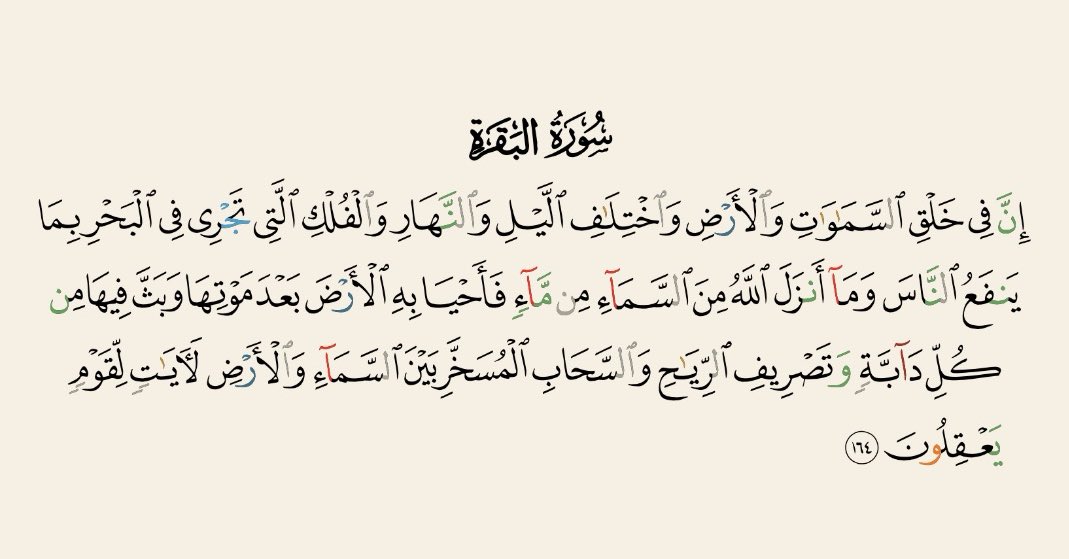 سُورَةُ البَقَرَةِ
إِنَّ فِى خَلْقِ ٱلسَّمَـٰوَٰتِ وَٱلْأَرْضِ وَٱخْتِلَـٰفِ ٱلَّيْـلِ وَٱلنَّـهَارِ وَٱلْفُلْكِ ٱلَّتِى تَجْرِى فِى ٱلْبَحْرِ بِمَا
يَنفَعُ ٱلنَّاسَ وَمَآ أَنزَلَ ٱللَّهُ مِنَ ٱلسَّـمَآءِ مِن مَّآءٍ فَأَحْيَـا بِهِ ٱلْأَرْضَ بَعْدَ مَوْتِـهَا وَبَثَّ فِيهَا مِن
كُلِّ دَآبَّةٍ وَتَصْرِيفِ ٱلرِّيَـٰحِ وَٱلسَّحَابِ ٱلْمُسَخَّرِ بَيْنَ ٱلسَّـمَآءِ وَٱلْأَرْضِ لَـَٔايَـٰتٍ لِّقَوْمٍ
يَعْـقِلُونَ ١٦٤